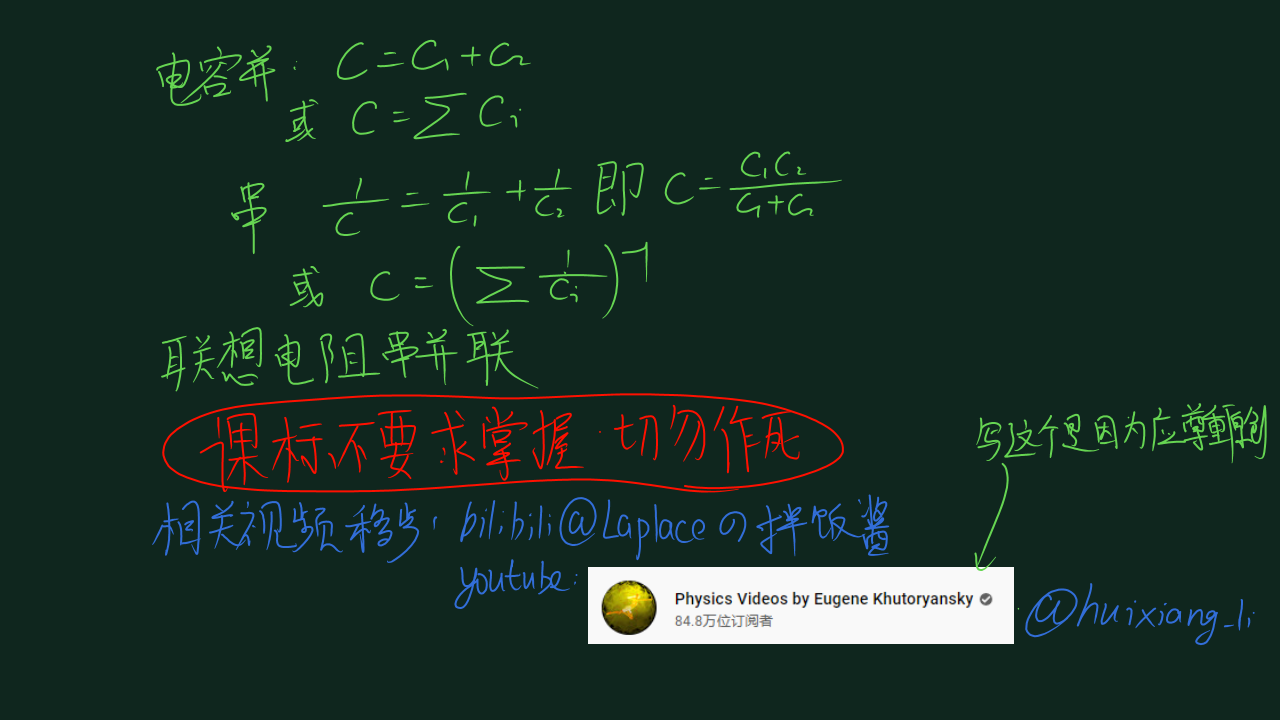 电容并: C=C₁+C₂
或 C=∑Cᵢ
串 1/C=1/C₁+1/C₂ 即 C=C₁C₂/(C₁+C₂)
或 C=(∑1/Cᵢ)⁻¹
联想电阻串并联
课标不要求掌握·切勿作死
写这个是因为应尊重原创
相关视频移步: bilibili@Laplaceの拌饭酱
youtube:
Physics Videos by Eugene Khutoryansky
84.8万位订阅者
@huixiang_li